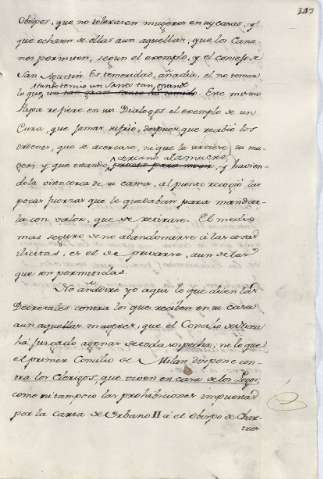 Obispos, que no tolerasen mugeres en sus casas, y
que echasen de ellas aun aquellas, que los Cano-
nes permiten, segun el exemplo, y el consejo de
San Agustin. Es temeridad, añadia, el no temer
lo que un Santo tan grande
Papa refiere en sus Dialogos el exemplo de un
Cura, que jamas sufrió, despues que recibió los
ordenes, que se acercase, ni que le sirviese su mu-
cercano a la muerte,
ger; y que estando, y havien-
dola visto cerca de su cama, al punto recogió las
pocas fuerzas que le quedaban para mandar-
la con valor, que se retirase. El medio
mas seguro de no abandonarse á las cosas
ilicitas, es el de privarse, aun de las
que son permitidas.
No añadiré yo aqui lo que dicen las
Decretales contra los que reciben en su casa
aun aquellas mugeres, que el Concilio de
ha juzgado agenas de toda sospecha, ni lo que
el primer Concilio de Milan dispone con-
tra los Clerigos, que viven en casa de los Legos,
como ni tampoco las prohibiciones impuestas
por la carta de Urbano II á el Obispo de Char-
tres